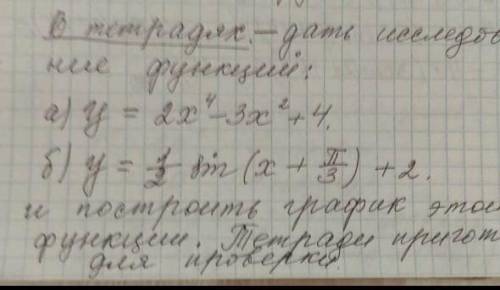 В тетрадях. – дать исследов
ние функций:
а) y = 2x⁴ - 3x² + 4.
б) y = 1/2 sin (x + π/3) + 2.
и построить график этой
функции. Тетради пригот
для проверки.